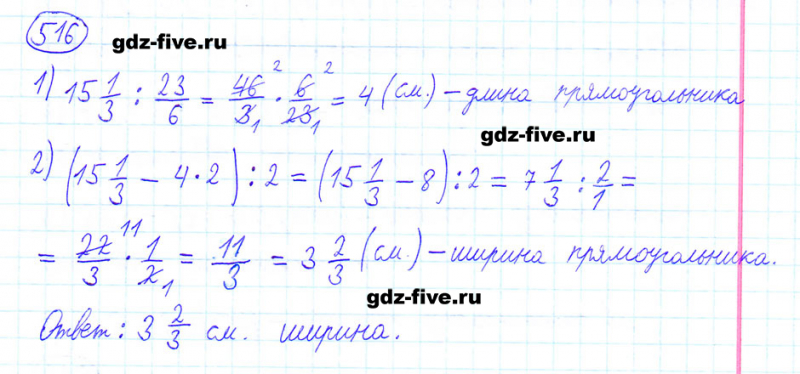 516
gdz-five.ru
1) 15 1/3 : 23/6 = 46/3 1 · 6/23 1 2 2 = 4 (см.) – длина прямоугольника
gdz-five.ru
2) (15 1/3 – 4·2) : 2 = (15 1/3 – 8) : 2 = 7 1/3 : 2/1 =
= 22/3 11 · 1/2 1 = 11/3 = 3 2/3 (см.) – ширина прямоугольника.
gdz-five.ru
Ответ: 3 2/3 см. ширина.